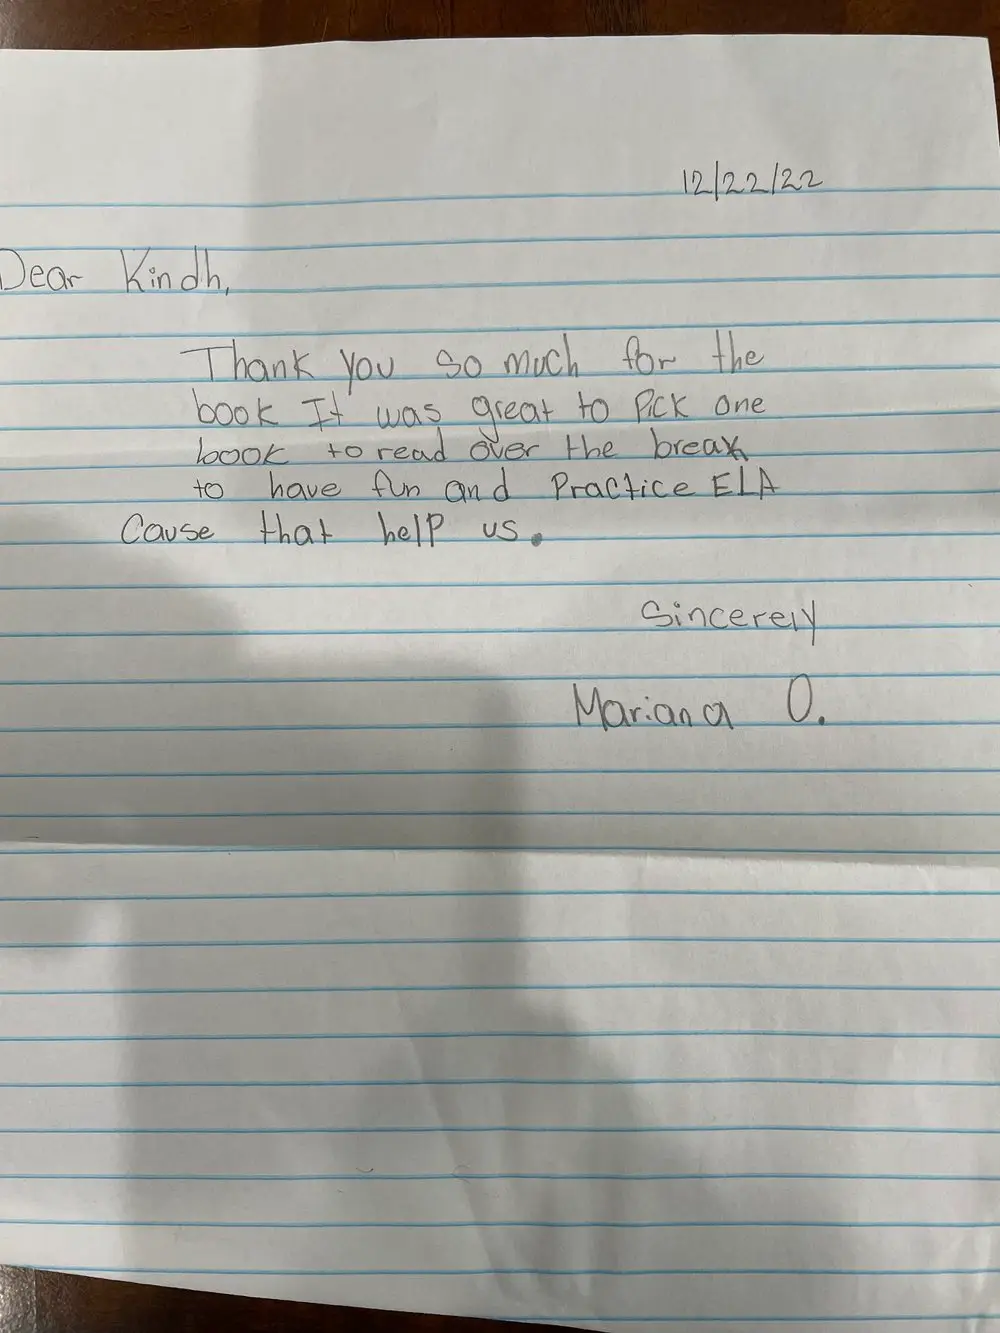 12/22/22
Dear Kindh,
Thank you so much for the
book It was great to Pick one
book to read over the break
to have fun and Practice ELA
Cause that help us.
Sincerely
Mariana O.